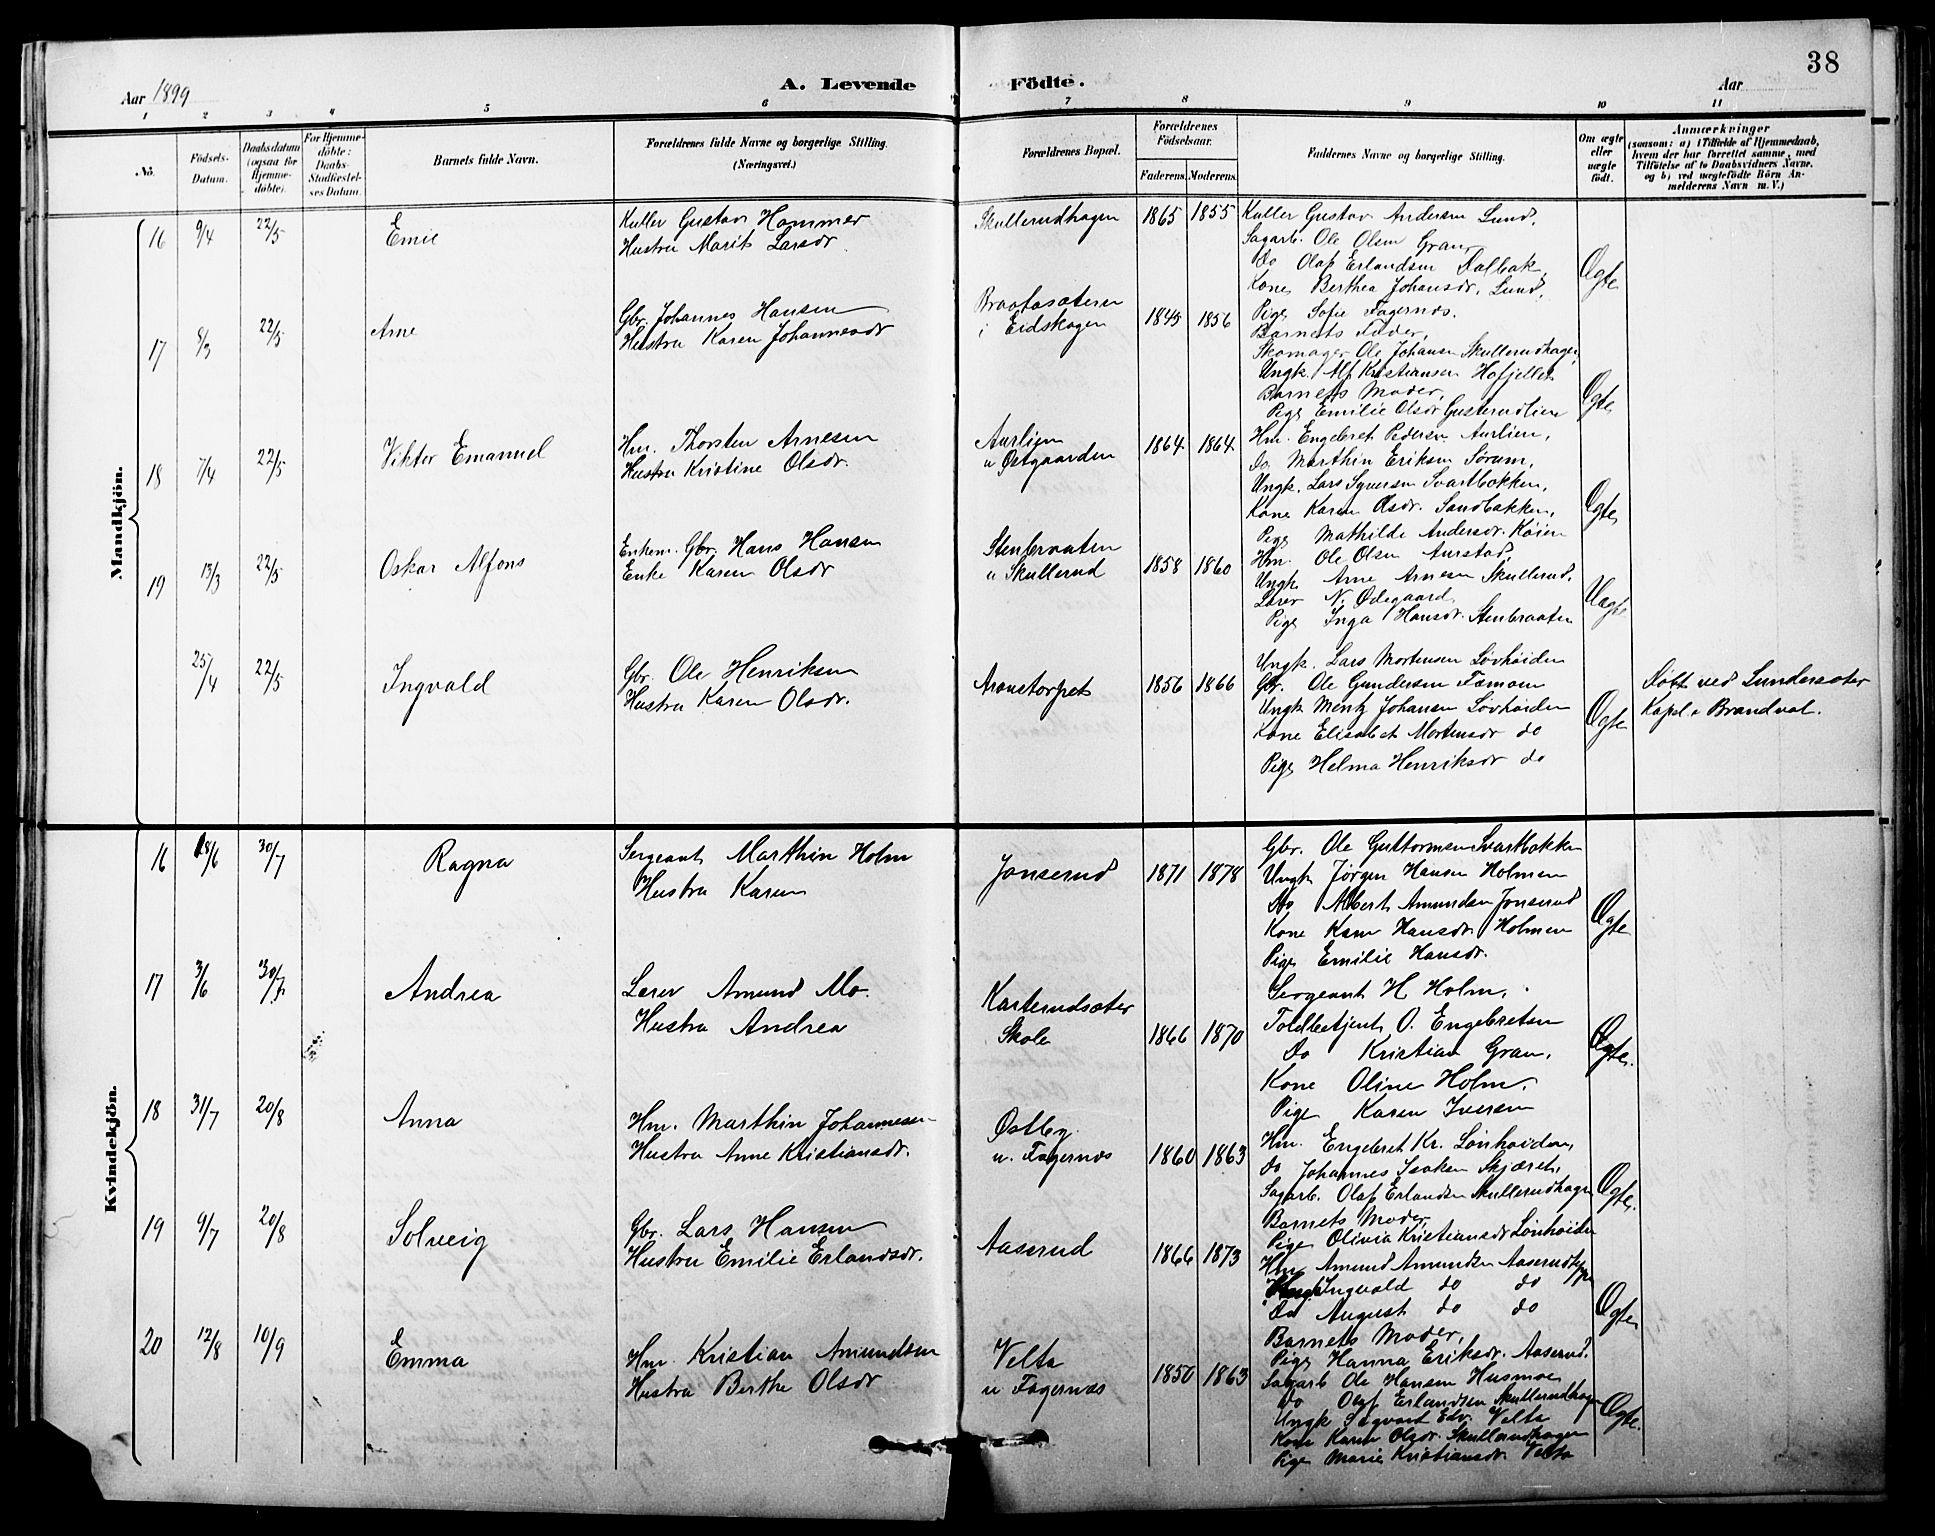 38
Aar 1899
A. Levende Födte.
Aar
1 2 3 4 5 6 7 8 9 10 11
No.
Födsels-Datum.
Daabsdatum (ogsaa for Hjemme-döbte).
For Hjemme-döbte: Daabs-Stadfæstel-ses Datum.
Barnets fulde Navn.
Forældrenes fulde Navne og borgerlige Stilling. (Næringsvei.)
Forældrenes Bopæl.
Forældrenes Födselsaar.
Faderens. Moderens.
Faddernes Navne og borgerlige Stilling.
Om ægte eller uægte födt.
Anmærkninger
(saasom: a) i Tilfælde af Hjemmedaab, hvem der har forrettet samme, med Tilföielse af to Daabsvidners Navne, og b) ved uægtefödte Börn An-melderens Navn m. V.)
Mandkjön.
16 9/4 22/5 Emil
Kuller Gustav Hammer
Hustru Marit Larsdr.
Skullerudhagen 1865 1855
Kuller Gustav Andersen Lund,
Sagarb. Ole Olsen Gran,
Do Olaf Erlandsen Dalbak,
Kone Berthea Johansdr. Lund,
Pige Sofie Fagernæs.
Ægte
17 8/3 22/5 Arne
Gbr. Johannes Hansen
Hustru Karen Johannesdr
Braatasæteren
i Eidskogen 1845 1856
Barnets Fader,
Skomager Ole Johansen Skullerudhagen,
Ungk. Alf Kristiansen Hofjellet
Barnets Moder,
Pige Emilie Olsdr Gusterudlien
Ægte
18 7/4 22/5 Viktor Emanuel
Hm. Thorsten Arnesen
Hustru Kristine Olsdr.
Aurlien
u Østgaarden 1864 1864
Hm. Engebret Pedersen Aurlien,
Do. Marthin Eriksen Sorum,
Ungk. Lars Syversen Svartbækken,
Kone Karen Olsdr. Sandbakken,
Pige Mathilde Andersdr. Køien
Ægte
19 13/3 22/5 Oskar Alfons
Enkem. Gbr. Hans Hansen
Enke Karen Olsdr
Stenbraaten
u Skullerud 1858 1860
Hm. Ole Olsen Aurstad,
Ungk. Arne Arnesen Skullerud,
Lærer N. Ødegaard,
Pige Inga Hansdr. Stenbraaten
Uægte
25/4 22/5 Ingvald
Gbr. Ole Henriksen
Hustru Karen Olsdr.
Aronstorpet 1856 1866
Ungk. Lars Mortensen Løvhøiden
Gbr. Ole Gundersen Fæmoen
Ungk Mentz Johansen Løvhøiden
Kone Elisabet Mortensdr do
Pige Helma Henriksdr do
Ægte
Døbt ved Lundersæter
Kapel i Brandval.
Kvindekjön.
16 18/6 30/7 Ragna
Sergeant Marthin Holm
Hustru Karen
Jonserud 1871 1878
Gbr. Ole Guttormsen Svartbækken
Ungk Jørgen Hansen Holmen
Do Albert Amundsen Jonserud
Kone Karen Hansdr. Holmen
Pige Emilie Hansdr.
Ægte
17 3/6 30/7 Andrea
Lærer Amund Mo.
Hustru Andrea
Karterudsæter
Skole 1866 1870
Sergeant H Holm,
Toldbetjent O. Engebretsen
Do Kristian Gran,
Kone Oline Holm,
Pige Karen Iversen
Ægte.
18 31/7 20/8 Anna
Hm. Marthin Johannesen
Hustru Anne Kristiansdr.
Østby
u. Fagernæs 1860 1863
Hm. Engebret Kr. Lønhøiden,
do Johannes Isaksen Skjæret,
Sagarb. Olaf Erlandsen Skullerudhagen
Barnets Moder,
Pige Olivia Kristiansdr Lønhøiden
Ægte.
19 9/7 20/8 Solveig
Gbr. Lars Hansen
Hustru Emilie Erlandsdr.
Aaserud 1866 1873
Hm Amund Amundsen Aaserud
Ungk Ingvald do do
Do August do do
Barnets Moder,
Pige Hanna Eriksdr. Aaserud.
Ægte
20 12/8 10/9 Emma
Hm. Kristian Amundsen
Hustru Berthe Olsdr
Velta
u Fagernæs 1850 1863
Sagarb Ole Hansen Husmoe,
Do Olaf Erlandsen Skullerudhagen
Ungk Sagvart Edv. Velta
Kone Karen Olsdr. Skullerudhagen
Pige Marie Kristiansdr. Velta
Ægte.